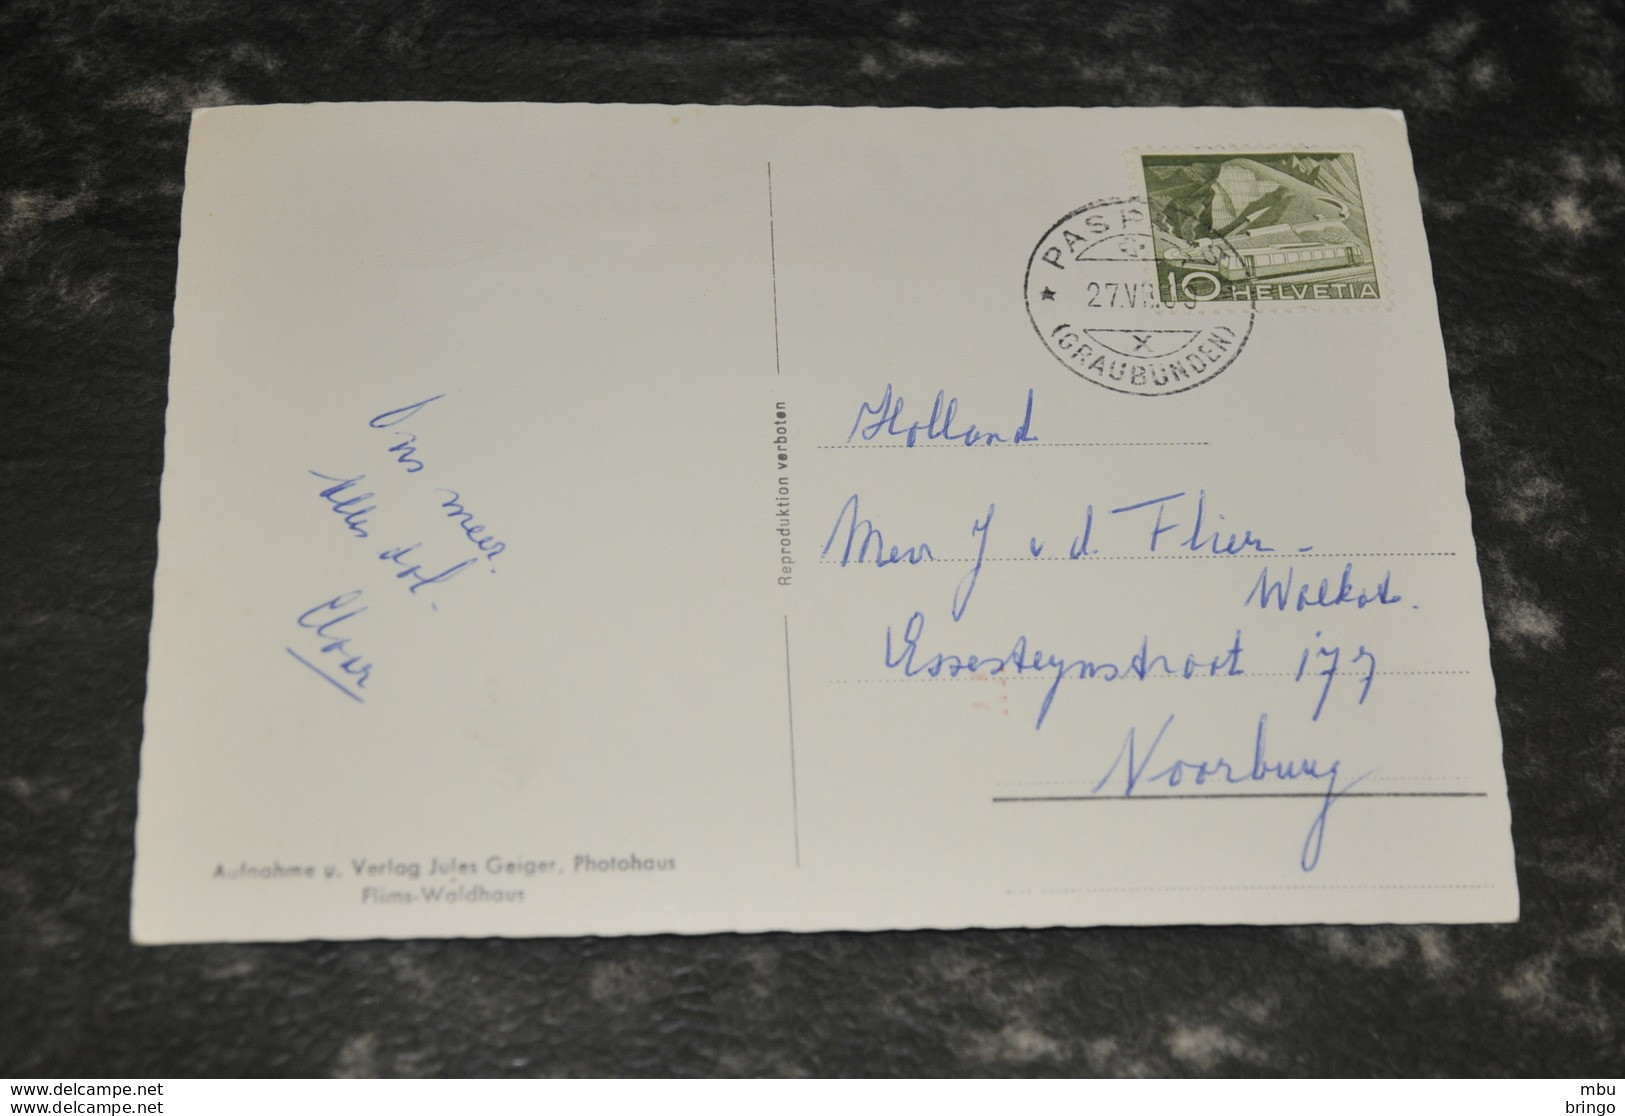 Ons meer.
Alles dol.
Aufnahme u. Verlag Jules Geiger, Photohaus
Flims-Waldhaus
Reproduktion verboten
PASPELS
27.VII.
X
(GRAUBÜNDEN)
10 HELVETIA
Holland
J v.d. Flier-
Essesteynstraat 177
Voorburg
www.delcampe.net
www.delcampe.net
mbu
bringo